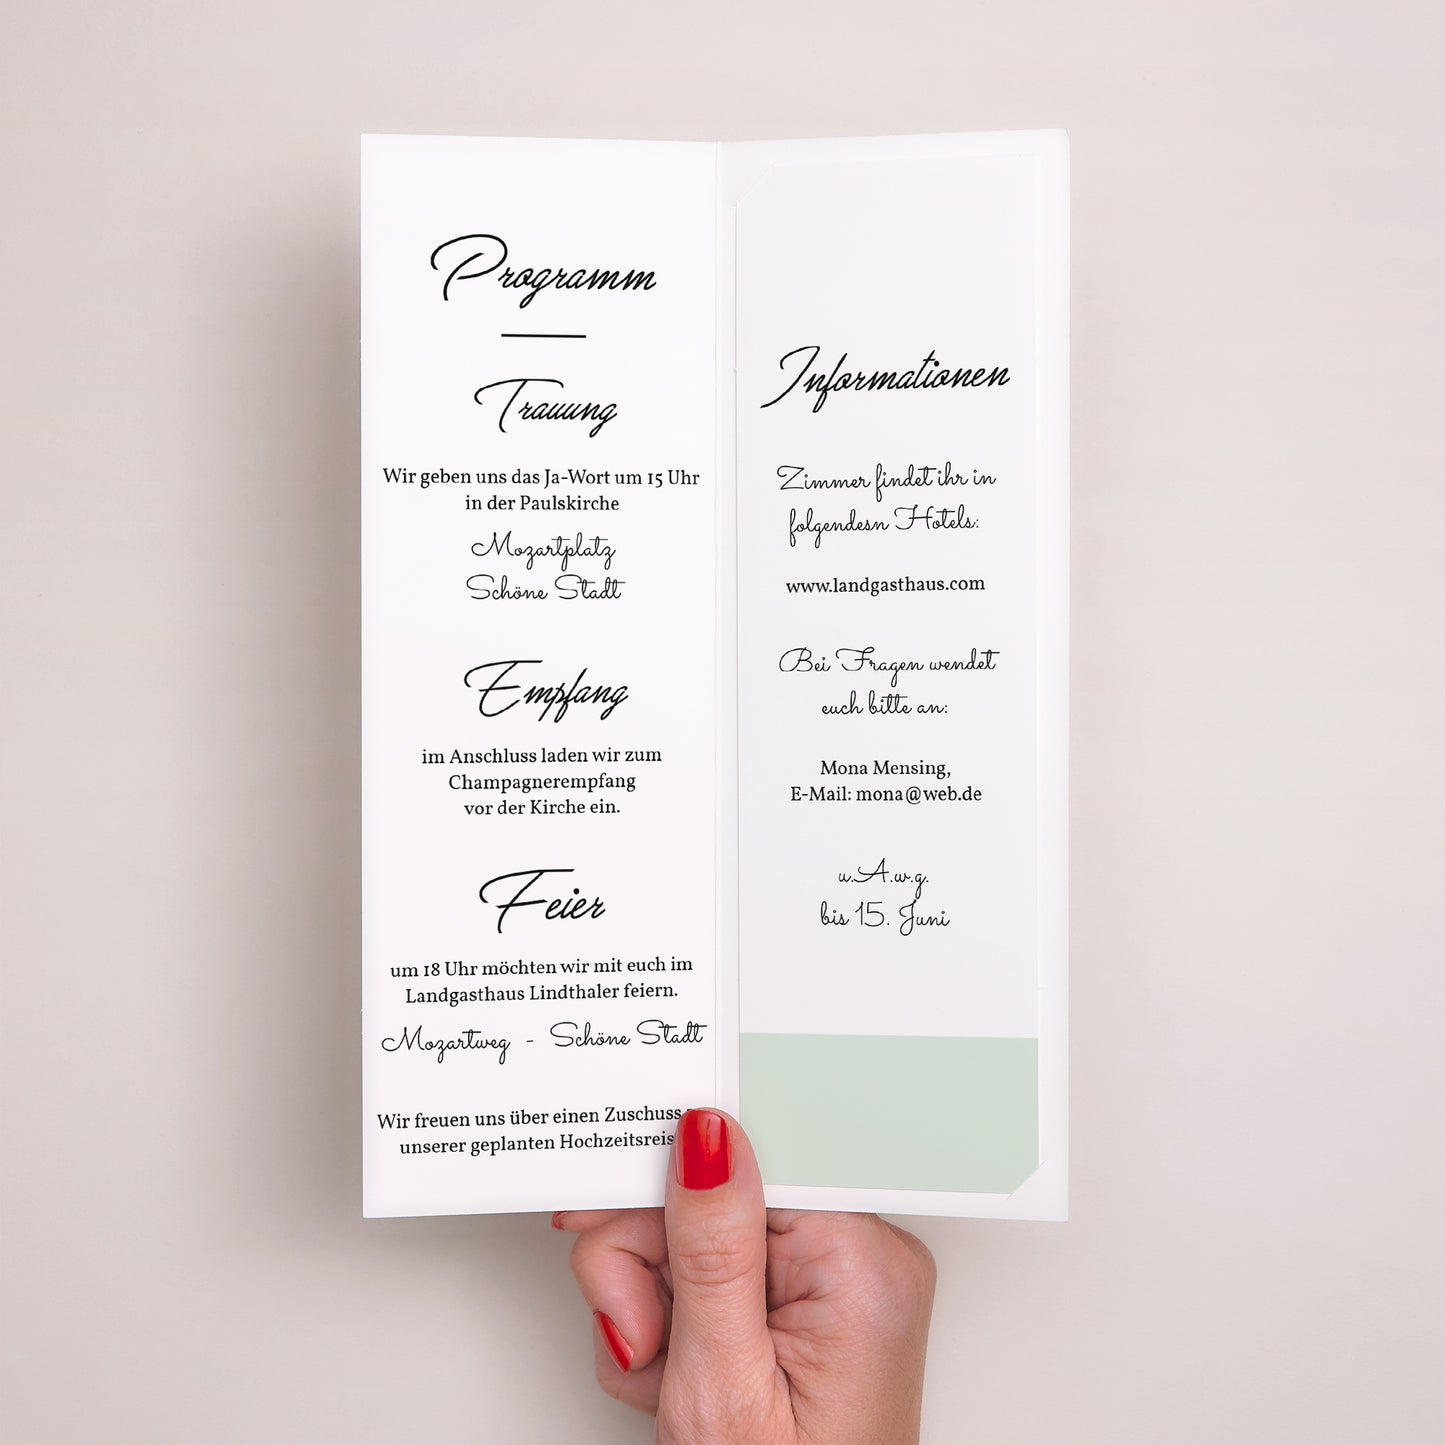 Programm
Trauung
Wir geben uns das Ja-Wort um 15 Uhr
in der Paulskirche
Mozartplatz
Schöne Stadt
Empfang
im Anschluss laden wir zum
Champagnerempfang
vor der Kirche ein.
Feier
um 18 Uhr möchten wir mit euch im
Landgasthaus Lindthaler feiern.
Mozartweg - Schöne Stadt
Wir freuen uns über einen Zuschuss
unserer geplanten
Informationen
Zimmer findet ihr in
folgendesn Hotels:
www.landgasthaus.com
Bei Fragen wendet
euch bitte an:
Mona Mensing,
E-Mail: mona@web.de
u.A.w.g.
bis 15. Juni